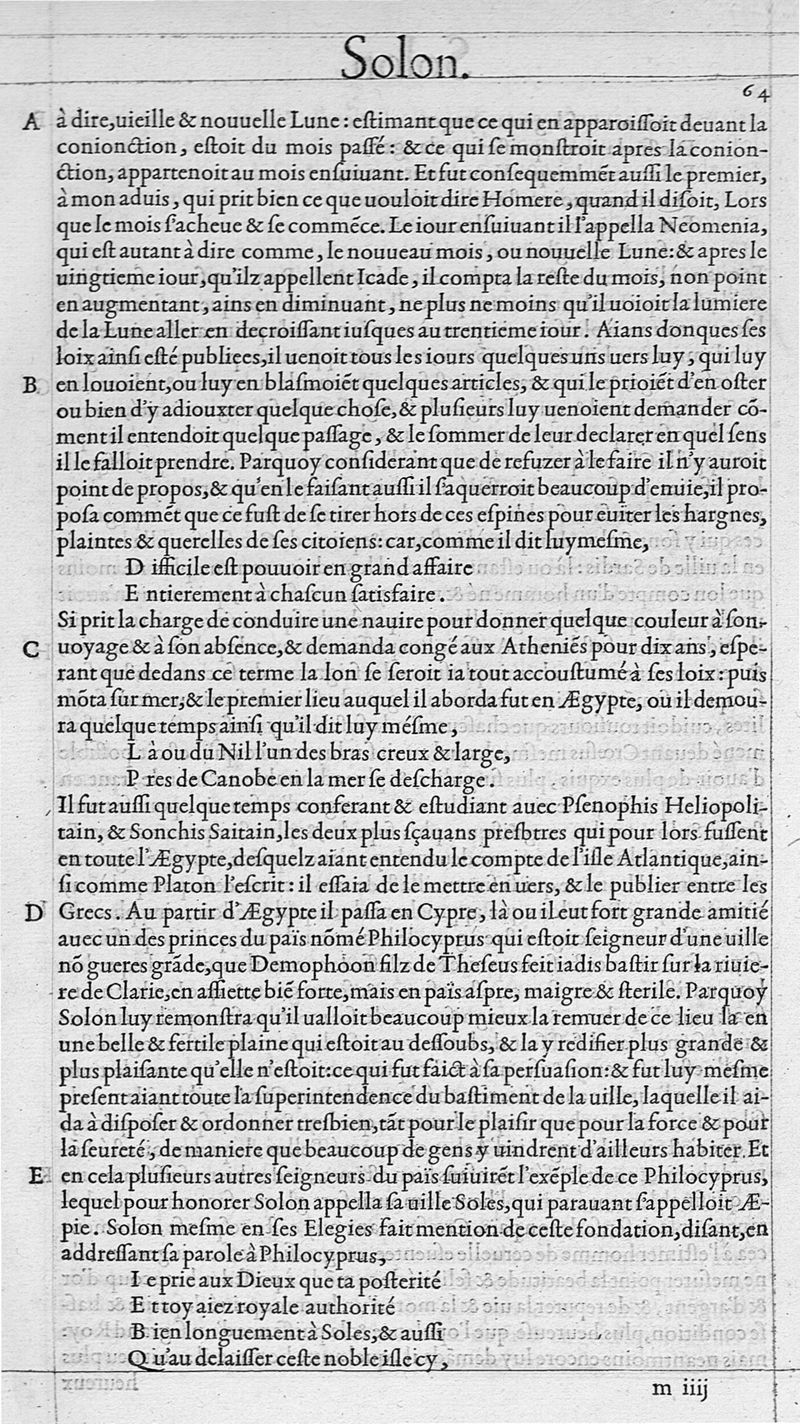 Solon.
64
A à dire,uieille & nouuelle Lune : eſtimant que ce qui en apparoiſſoit deuant la
conionction, eſtoit du mois paſſé : & ce qui ſe monſtroit apres la conion-
ction, appartenoit au mois enſuiuant. Et fut conſequemmẽt auſſi le premier,
à mon aduis, qui prit bien ce que uouloit dire Homere, quand il diſoit, Lors
que le mois ſ'acheue & ſe commẽce. Le iour enſuiuant il l'appella Neomenia,
qui eſt autant à dire comme, le nouueau mois, ou nouuelle Lune: & apres le
uingtieme iour, qu'ilz appellent Icade, il compta la reſte du mois, non point
en augmentant, ains en diminuant, ne plus ne moins qu'il uoioit la lumiere
de la Lune aller en decroiſſant iuſques au trentieme iour. Aians donques ſes
loix ainſi eſté publiees, il uenoit tous les iours quelques uns uers luy, qui luy
B en louoient, ou luy en blaſmoiẽt quelques articles, & qui le prioiẽt d'en oſter
ou bien d'y adiouxter quelque choſe, & pluſieurs luy uenoient demander cõ-
ment il entendoit quelque paſſage, & le ſommer de leur declarer en quel ſens
il le falloit prendre. Parquoy conſiderant que de refuzer à le faire il n'y auroit
point de propos, & qu'en le faiſant auſſi il ſ'aquerroit beaucoup d'enuie, il pro-
poſa commẽt que ce fuſt de ſe tirer hors de ces eſpines pour euiter les hargnes,
plaintes & querelles de ſes citoiens: car, comme il dit luymeſme,
D ifficile eſt pouuoir en grand affaire
E ntierement à chaſcun ſatisfaire.
Si prit la charge de conduire une nauire pour donner quelque couleur à ſon
C uoyage & à ſon abſence, & demanda congé aux Atheniẽs pour dix ans, eſpe-
rant que dedans ce terme la lon ſe ſeroit ia tout accouſtumé à ſes loix : puis
mõta ſur mer, & le premier lieu auquel il aborda fut en Ægypte, ou il demou-
ra quelque temps ainſi qu'il dit luy méſme,
L à ou du Nil l'un des bras creux & large,
P res de Canobe en la mer ſe deſcharge.
Il fut auſſi quelque temps conferant & eſtudiant auec Pſenophis Heliopoli-
tain, & Sonchis Saitain, les deux plus ſçauans preſbtres qui pour lors fuſſent
en toute l'Ægypte, deſquelz aiant entendu le compte de l'iſle Atlantique, ain-
ſi comme Platon l'eſcrit : il eſſaia de le mettre en uers, & le publier entre les
D Grecs. Au partir d'Ægypte il paſſa en Cypre, là ou il eut fort grande amitié
auec un des princes du païs nõmé Philocyprus qui eſtoit ſeigneur d'une uille
nõ gueres grãde, que Demophoon filz de Theſeus feit iadis baſtir ſur la riuie-
re de Clarie, en aſſiette biẽ forte, mais en païs aſpre, maigre & ſterile. Parquoy
Solon luy remonſtra qu'il ualloit beaucoup mieux la remuer de ce lieu la en
une belle & fertile plaine qui eſtoit au deſſoubs, & la y redifier plus grande &
plus plaiſante qu'elle n'eſtoit: ce qui fut faict à ſa perſuaſion: & fut luy meſme
preſent aiant toute la ſuperintendence du baſtiment de la uille, laquelle il ai-
da à diſpoſer & ordonner treſbien, tãt pour le plaiſir que pour la force & pour
la ſeureté, de maniere que beaucoup de gens y uindrent d'ailleurs habiter. Et
E en cela pluſieurs autres ſeigneurs du païs ſuiuirẽt l'exẽple de ce Philocyprus,
lequel pour honorer Solon appella ſa uille Soles, qui parauant ſ'appelloit Æ-
pie. Solon meſme en ſes Elegies fait mention de ceſte fondation, diſant, en
addreſſant ſa parole à Philocyprus,
I e prie aux Dieux que ta poſterité
E t toy aiez royale authorité
B ien longuement à Soles, & auſſi
Q u'au delaiſſer ceſte noble iſle cy,
m iiij